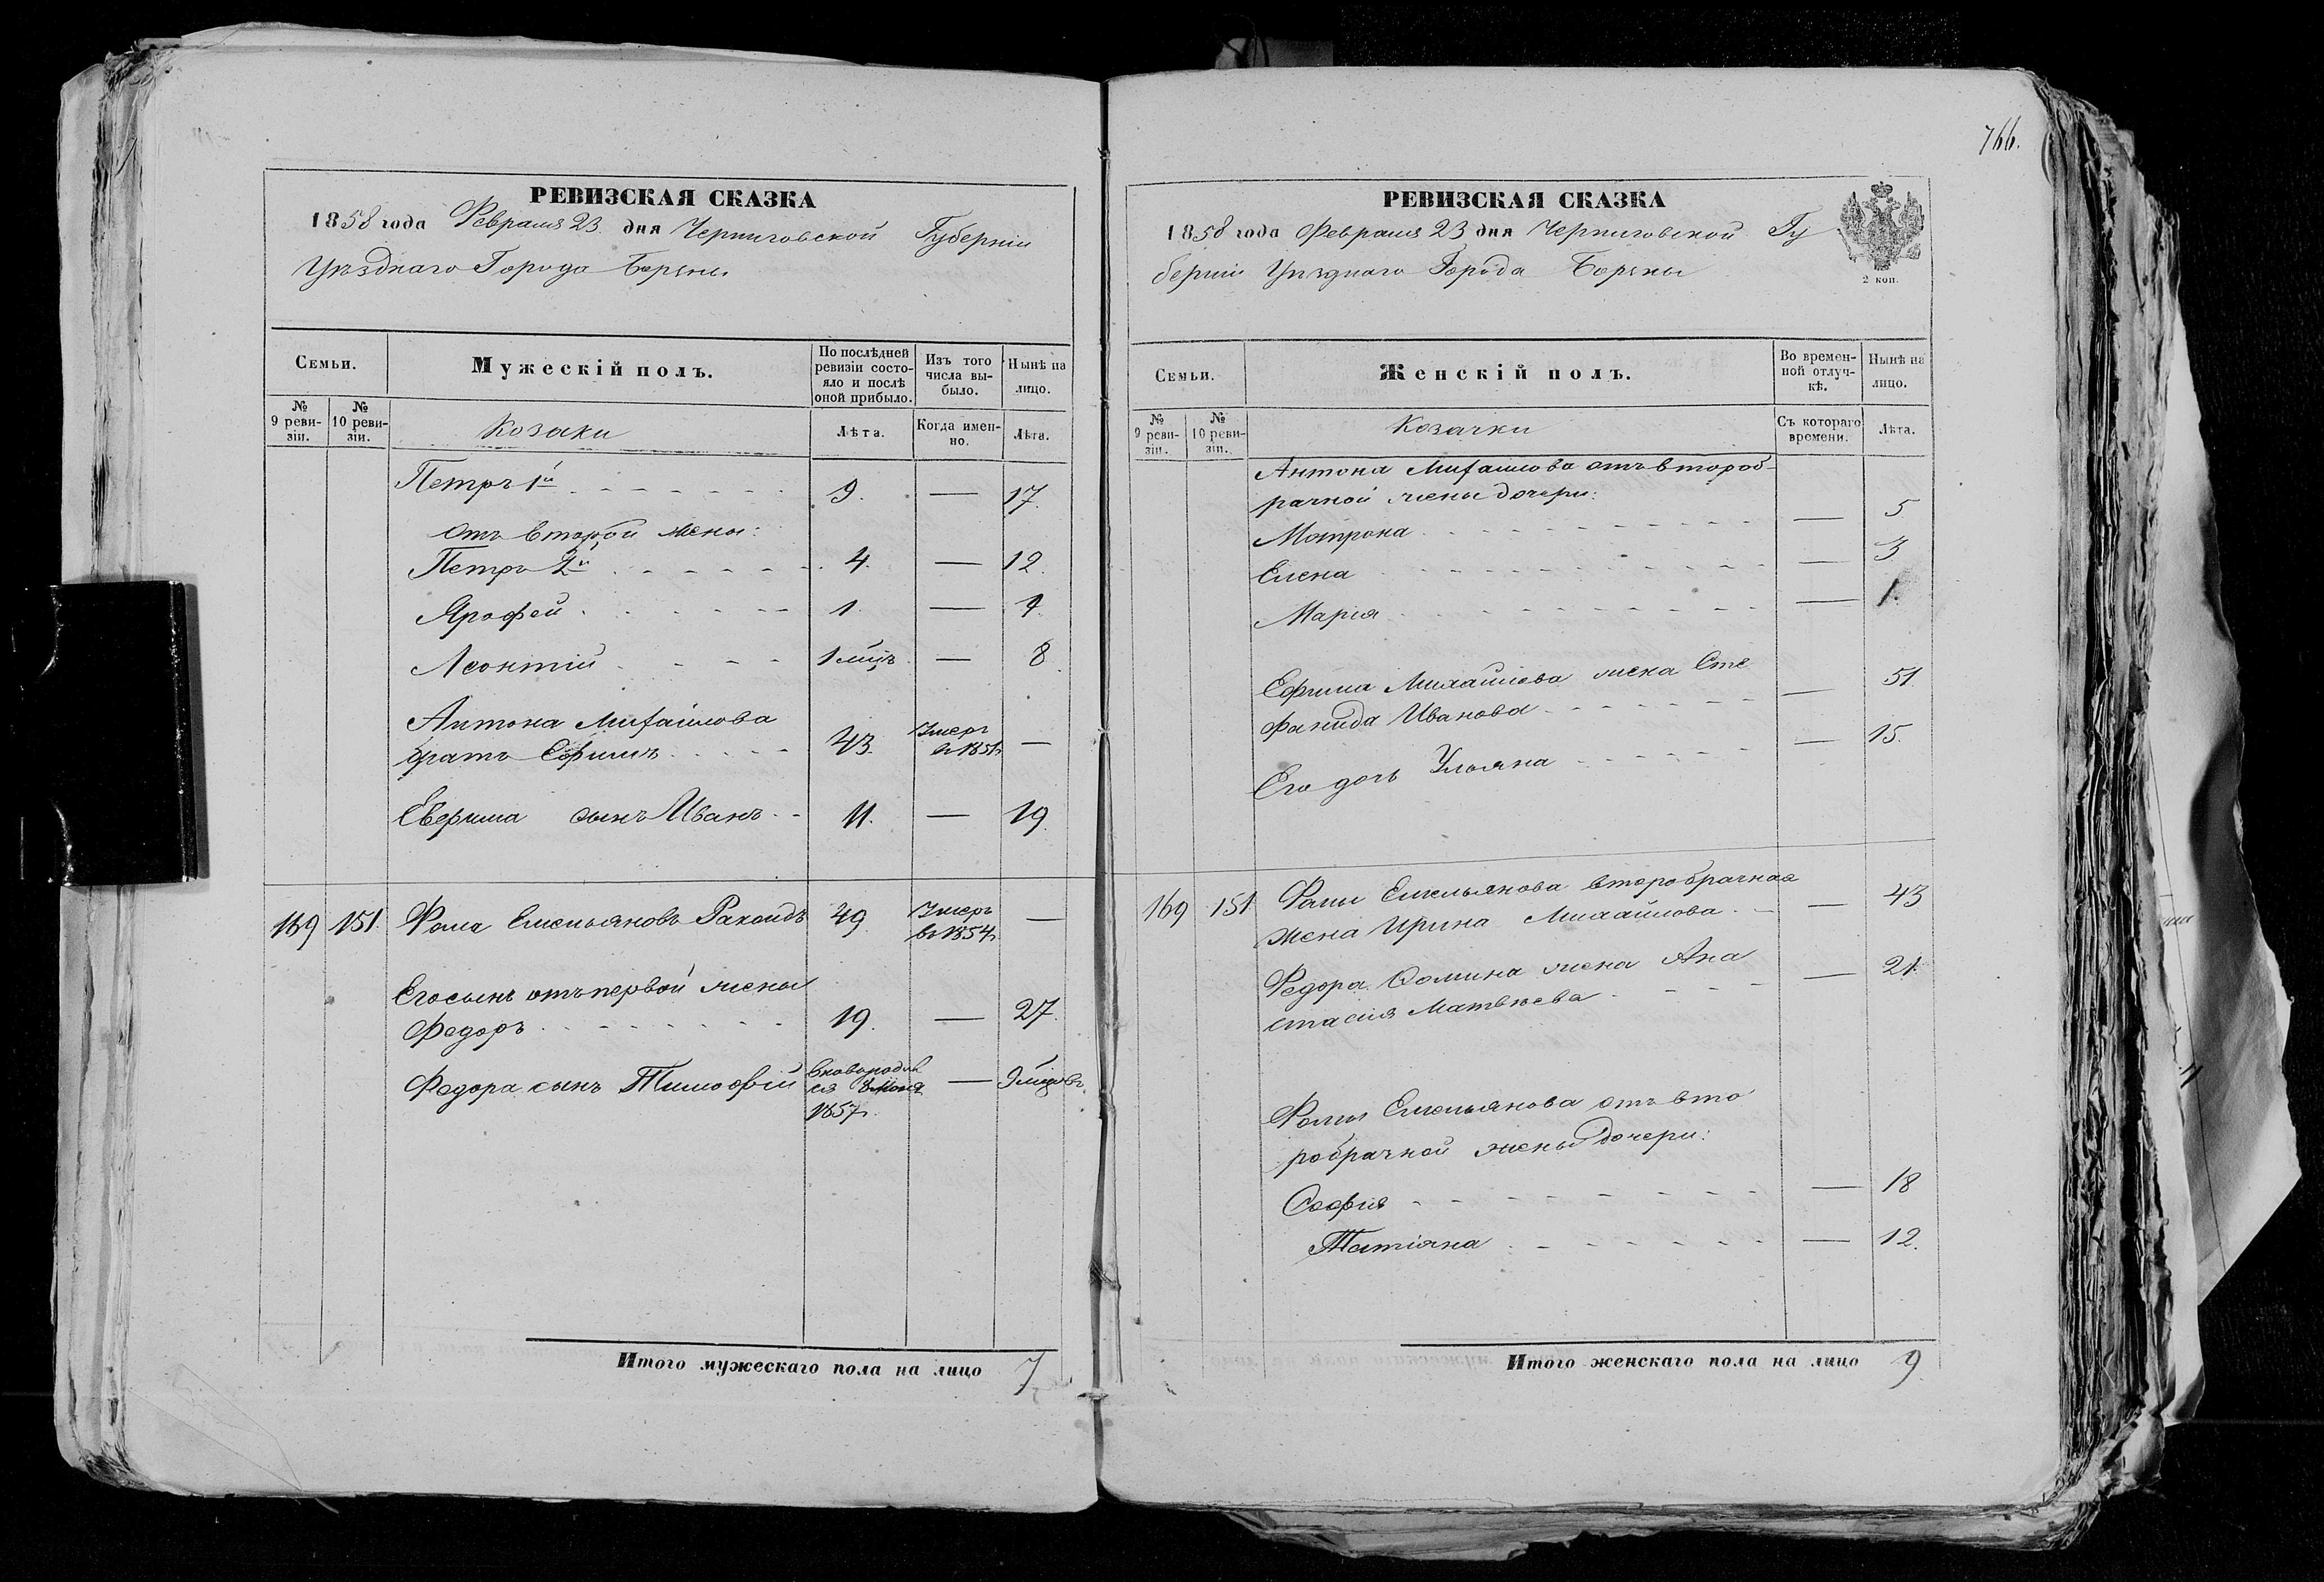 766.
РЕВИЗСКАЯ СКАЗКА
1858 года Февраля 23 дня Черниговской Губерніи
Уѣзднаго Города Борзны
Семьи.
Мужескій полъ.
По послѣдней ревизіи состояло и послѣ оной прибыло.
Изъ того числа выбыло.
Нынѣ на лицо.
№ 9 ревизіи.
№ 10 ревизіи.
Козаки
Лѣта.
Когда именно.
Лѣта.
Петръ 1й 9. — 17.
отъ второй жены:
Петръ 2й 4. — 12.
Ярофей 1. —
Леонтій 1 мцъ — 8
Антона Михайлова
братъ Ефимъ 43. Умеръ —
Ефима сынъ Иванъ 11. — 19.
169 151. Фома Емельяновъ 49 Умеръ в 1854 г. —
Его сынъ отъ первой жены
Федоръ 19. — 27.
Федора сынъ Тимофѣй
1857 г. —
Итого мужескаго пола на лицо 7
РЕВИЗСКАЯ СКАЗКА
1858 года Февраля 23 дня Черниговской Гу
берніи Уѣзднаго Города Борзны
2 коп.
Семьи.
Женскій полъ.
Во временной отлучкѣ.
Нынѣ на лицо.
№ 9 ревизіи.
№ 10 ревизіи.
Козачки
Съ котораго времени.
Лѣта.
Антона Михайлова отъ второб
рачной жены дочери:
Мотрона — 5
Елена — 3
Марія — 1.
Ефима Михайлова жена Сте
фанида Иванова — 51.
Его дочь Ульяна — 15.
169 151 Фомы Емельянова второбрачная
жена Ирина Михайлова — 43
Федора Фомина жена Ана
стасія Матвѣева — 21.
Фомы Емельянова отъ вто
робрачной жены дочери:
Софія — 18
Татіяна — 12.
Итого женскаго пола на лицо 9